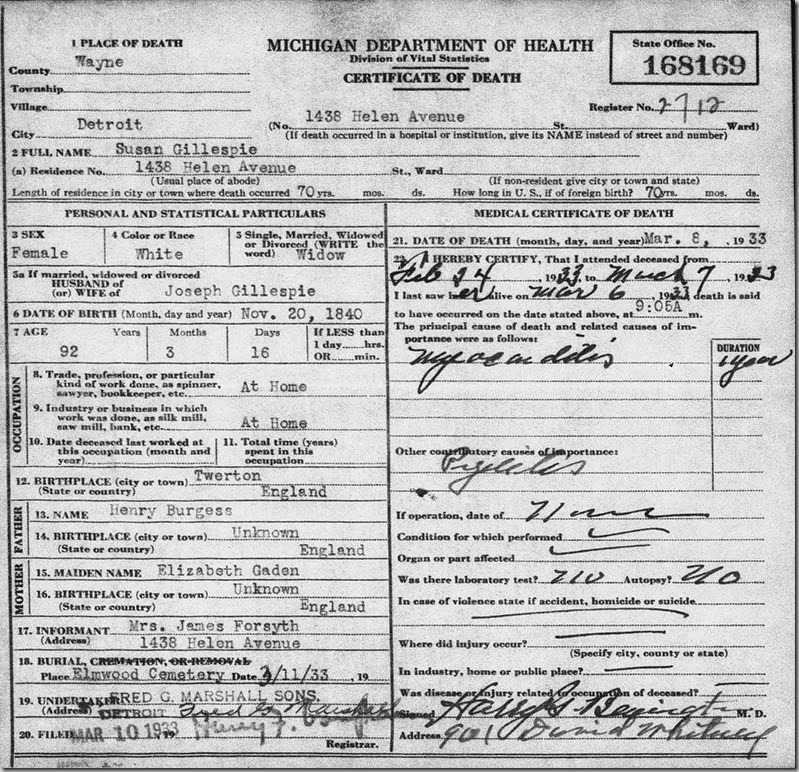 1 PLACE OF DEATH
County Wayne
Township
Village
City Detroit
MICHIGAN DEPARTMENT OF HEALTH
Division of Vital Statistics
CERTIFICATE OF DEATH
State Office No.
168169
Register No. 2712
(No. 1438 Helen Avenue St., Ward)
(If death occurred in a hospital or institution, give its NAME instead of street and number)
2 FULL NAME Susan Gillespie
(a) Residence No. 1438 Helen Avenue St., Ward
(Usual place of abode) (If non-resident give city or town and state)
Length of residence in city or town where death occurred 70 yrs. mos. ds. How long in U. S., if of foreign birth? 70 yrs. mos. ds.
PERSONAL AND STATISTICAL PARTICULARS
3 SEX
Female
4 Color or Race
White
5 Single, Married, Widowed
or Divorced (WRITE the
word) Widow
5a If married, widowed or divorced
HUSBAND of
(or) WIFE of Joseph Gillespie
6 DATE OF BIRTH (Month, day and year) Nov. 20, 1840
7 AGE Years Months Days If LESS than
1 day hrs.
OR min.
92 3 16
OCCUPATION
8. Trade, profession, or particular
kind of work done, as spinner,
sawyer, bookkeeper, etc. At Home
9. Industry or business in which
work was done, as silk mill,
saw mill, bank, etc. At Home
10. Date deceased last worked at
this occupation (month and
year)
11. Total time (years)
spent in this
occupation
12. BIRTHPLACE (city or town) Twerton
(State or country) England
FATHER
13. NAME Henry Burgess
14. BIRTHPLACE (city or town) Unknown
(State or country) England
MOTHER
15. MAIDEN NAME Elizabeth Gaden
16. BIRTHPLACE (city or town) Unknown
(State or country) England
17. INFORMANT Mrs. James Forsyth
(Address) 1438 Helen Avenue
18. BURIAL, CREMATION, OR REMOVAL
Place Elmwood Cemetery Date 3/11/33, 19
19. UNDERTAKER FRED G. MARSHALL SONS.
(Address) DETROIT Fred G. Marshall
20. FILED MAR 10 1933, 19 Henry F.
Registrar.
MEDICAL CERTIFICATE OF DEATH
21. DATE OF DEATH (month, day, and year) Mar. 8, 1933
22. I HEREBY CERTIFY, That I attended deceased from
Feb 24 1933, to March 7, 1933
I last saw her alive on Mar 6, 1933, death is said
to have occurred on the date stated above, at 9:05A m.
The principal cause of death and related causes of im-
portance were as follows:
DURATION
Myocarditis 1 year
Other contributory causes of importance:
If operation, date of None
Condition for which performed
Organ or part affected
Was there laboratory test? no Autopsy? no
In case of violence state if accident, homicide or suicide
Where did injury occur?
(Specify city, county or state)
In industry, home or public place?
Was disease or injury related to occupation of deceased?
Signed Harry G. M. D.
Address 901 David Whitney